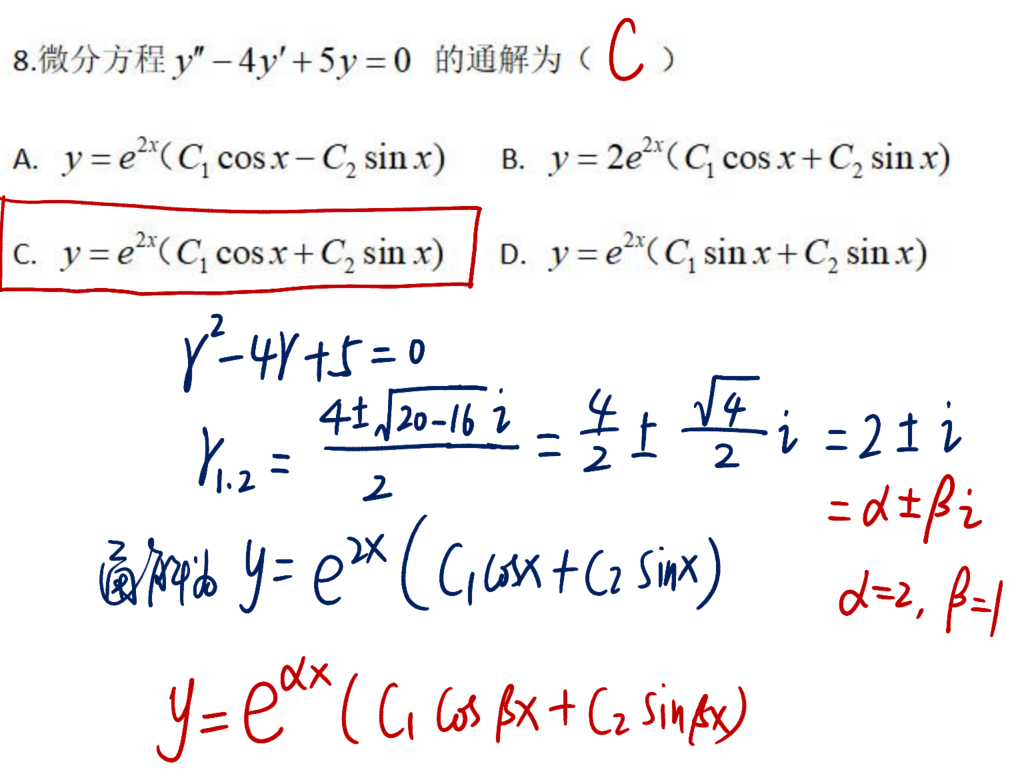 8.微分方程 y″ − 4y′ + 5y = 0 的通解为（ C ）
A. y = e^{2x}(C₁ cos x − C₂ sin x) B. y = 2e^{2x}(C₁ cos x + C₂ sin x)
C. y = e^{2x}(C₁ cos x + C₂ sin x) D. y = e^{2x}(C₁ sin x + C₂ sin x)
r² − 4r + 5 = 0
r₁.₂ = (4 ± √(20−16) i)/2 = 4/2 ± (√4)/2 i = 2 ± i
= α ± βi
通解为 y = e^{2x}(C₁ cosx + C₂ sinx)
α=2, β=1
y = e^{αx}(C₁ cos βx + C₂ sin βx)